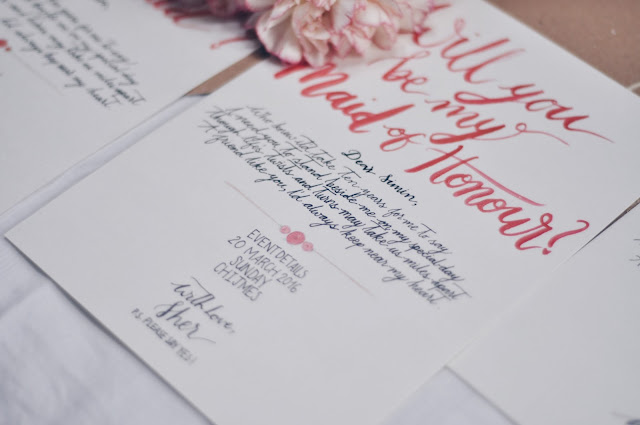 Will you
be my
Maid of Honour?
Dear Simin,
Who knew it'll take ten years for me to say
I need you to stand beside me on my special day
Though life's twists and turns may take us miles apart
A friend like you, I'd always keep near my heart
EVENT DETAILS
20 MARCH 2016
SUNDAY
CHIJMES
With love,
Sher
P.S. PLEASE SAY YES!